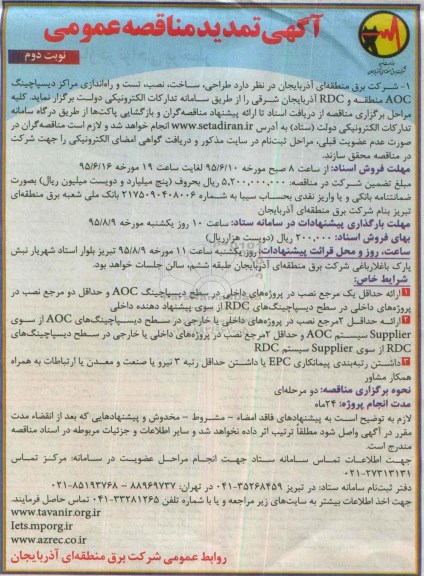 آگهی تمدید مناقصه عمومی
نوبت دوم
۱- شرکت برق منطقه‌ای آذربایجان در نظر دارد طراحی، ساخت، نصب، تست و راه‌اندازی مراکز دیسپاچینگ
AOC منطقه و RDC آذربایجان شرقی را از طریق سامانه تدارکات الکترونیکی دولت برگزار نماید. کلیه
مراحل برگزاری مناقصه از دریافت اسناد تا ارائه پیشنهاد مناقصه‌گران و بازگشایی پاکت‌ها از طریق درگاه سامانه
تدارکات الکترونیکی دولت (ستاد) به آدرس www.setadiran.ir انجام خواهد شد و لازم است مناقصه‌گران در
صورت عدم عضویت قبلی، مراحل ثبت‌نام در سایت مذکور و دریافت گواهی امضای الکترونیکی را جهت شرکت
در مناقصه محقق سازند.
مهلت فروش اسناد: از ساعت ۸ صبح مورخه ۹۵/۶/۱۰ لغایت ساعت ۱۹ مورخه ۹۵/۶/۱۶
مبلغ تضمین شرکت در مناقصه: ۵,۲۰۰,۰۰۰,۰۰۰ ریال بحروف (پنج میلیارد و دویست میلیون ریال) بصورت
ضمانتنامه بانکی و یا واریز نقدی بحساب سیبا به شماره ۲۱۷۵۰۹۰۴۰۸۰۰۶ بانک ملی شعبه برق منطقه‌ای
تبریز بنام شرکت برق منطقه‌ای آذربایجان
مهلت بارگذاری پیشنهادات در سامانه ستاد: ساعت ۱۰ روز یکشنبه مورخه ۹۵/۸/۹
بهای فروش اسناد: ۲۰۰,۰۰۰ ریال (دویست هزار ریال)
ساعت، روز و محل قرائت پیشنهادات: روز یکشنبه ساعت ۱۱ مورخه ۹۵/۸/۹ تبریز بلوار استاد شهریار نبش
پارک باغلارباغی شرکت برق منطقه‌ای آذربایجان طبقه ششم، سالن جلسات خواهد بود.
شرایط خاص:
۱ ارائه حداقل یک مرجع نصب در پروژه‌های داخلی در سطح دیسپاچینگ AOC و حداقل دو مرجع نصب در
پروژه‌های داخلی در سطح دیسپاچینگ‌های RDC از سوی پیشنهاد دهنده داخلی
۲ ارائه حداقل ۲مرجع نصب در پروژه‌های داخلی یا خارجی در سطح دیسپاچینگ‌های AOC از سوی
Supplier سیستم AOC و حداقل ۲مرجع نصب در پروژه‌های داخلی یا خارجی در سطح دیسپاچینگ‌های
RDC از سوی Supplier سیستم RDC
۳ داشتن رتبه‌بندی پیمانکاری EPC یا داشتن حداقل رتبه ۳ نیرو یا صنعت و معدن یا ارتباطات به همراه
همکار مشاور
نحوه برگزاری مناقصه: دو مرحله‌ای
مدت انجام پروژه: ۲۴ماه
لازم به توضیح است به پیشنهادهای فاقد امضاء - مشروط - مخدوش و پیشنهادهایی که بعد از انقضاء مدت
مقرر در آگهی واصل شود مطلقاً ترتیب اثر داده نخواهد شد و سایر اطلاعات و جزئیات مربوطه در اسناد مناقصه
مندرج است.
جهت اطلاعات تماس سامانه ستاد جهت انجام مراحل عضویت در سامانه: مرکز تماس
۰۲۱-۲۷۳۱۳۱۳۱
دفتر ثبت‌نام سامانه ستاد: در تبریز ۳۵۲۶۸۴۵۹-۰۴۱ در تهران: ۸۸۹۶۹۷۳۷ - ۸۵۱۹۳۷۶۸-۰۲۱
جهت اخذ اطلاعات بیشتر به سایت‌های زیر مراجعه و یا با شماره تلفن ۳۳۲۸۱۲۶۵-۰۴۱ تماس حاصل فرمایند.
www.tavanir.org.ir
Iets.mporg.ir
www.azrec.co.ir
روابط عمومی شرکت برق منطقه‌ای آذربایجان